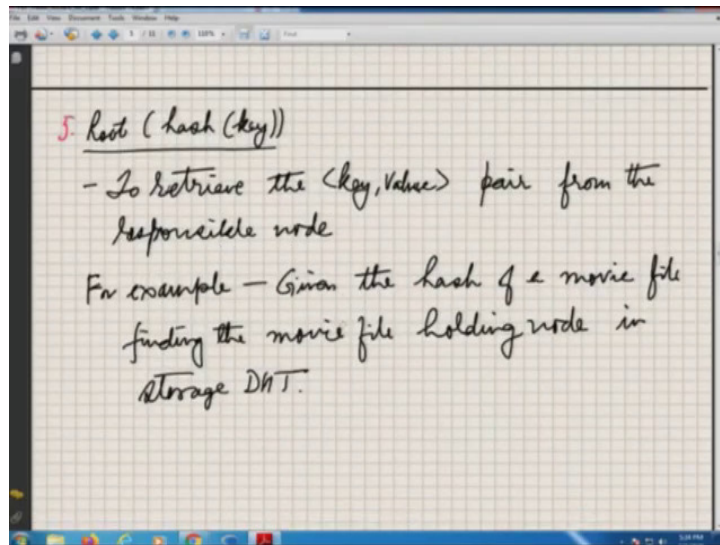 File Edit View Document Tools Window Help
5 / 11 110% Find
5. Root (hash (key))
- To retrieve the <key, value> pair from the
responsible node
For example - Given the hash of a movie file
finding the movie file holding node in
storage DHT.
5:29 PM